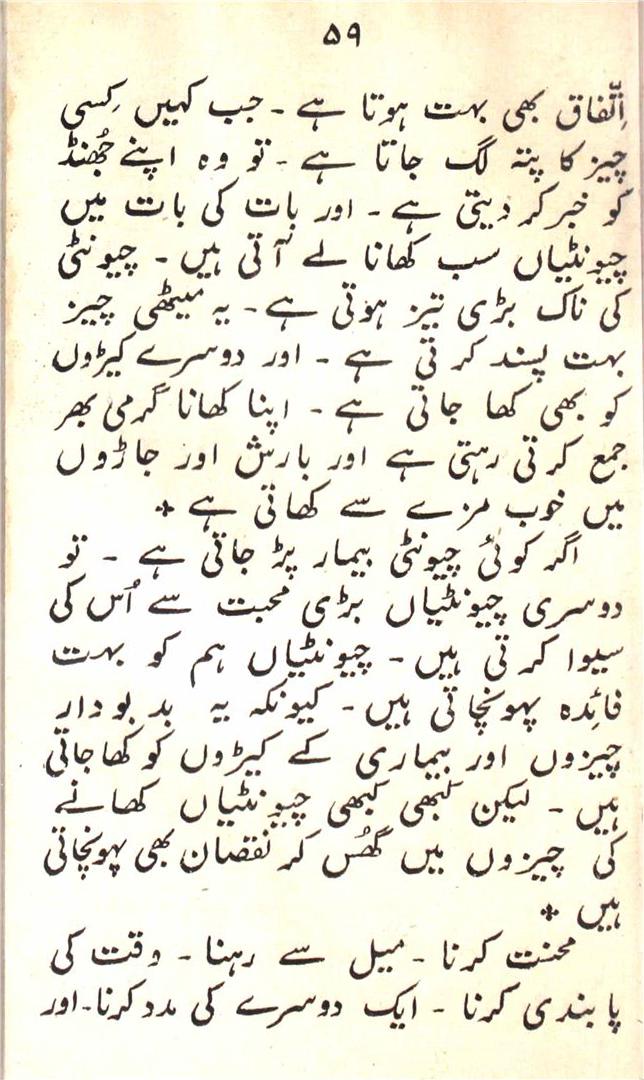 ۵۹
اِتّفاق بھی بہت ہوتا ہے ۔ جب کہیں کِسی
چیز کا پتہ لگ جاتا ہے ۔ تو وہ اپنے جُھنڈ
کو خبر کر دیتی ہے ۔ اور بات کی بات میں
چیونٹیاں سب کھانا لے آتی ہیں ۔ چیونٹی
کی ناک بڑی تیز ہوتی ہے ۔ یہ میٹھی چیز
بہت پسند کرتی ہے ۔ اور دوسرے کیڑوں
کو بھی کھا جاتی ہے ۔ اپنا کھانا گرمی بھر
جمع کرتی رہتی ہے اور بارش اور جاڑوں
میں خوب مزے سے کھاتی ہے *
اگر کوئی چیونٹی بیمار پڑ جاتی ہے ۔ تو
دوسری چیونٹیاں بڑی محبت سے اُس کی
سیوا کرتی ہیں ۔ چیونٹیاں ہم کو بہت
فائِدہ پہونچاتی ہیں ۔ کیونکہ یہ بدبودار
چیزوں اور بیماری کے کیڑوں کو کھا جاتی
ہیں ۔ لیکن کبھی کبھی چیونٹیاں کھانے
کی چیزوں میں گھُس کر نقصان بھی پہونچاتی
ہیں *
محنت کرنا ۔ میل سے رہنا ۔ وقت کی
پابندی کرنا ۔ ایک دوسرے کی مدد کرنا ۔ اور